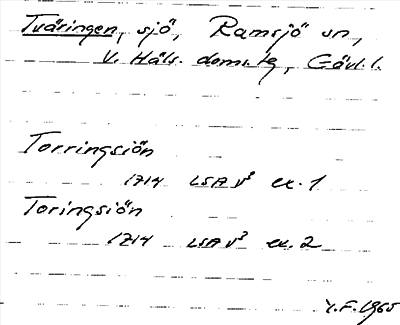 Tväringen, sjö, Ramsjö sn,
V. Häls. doms.lg, Gävl. l.
Torringsiön
1714 LSA V³ ex. 1
Toringsiön
1714 LSA V³ ex. 2
Y.F. 1965